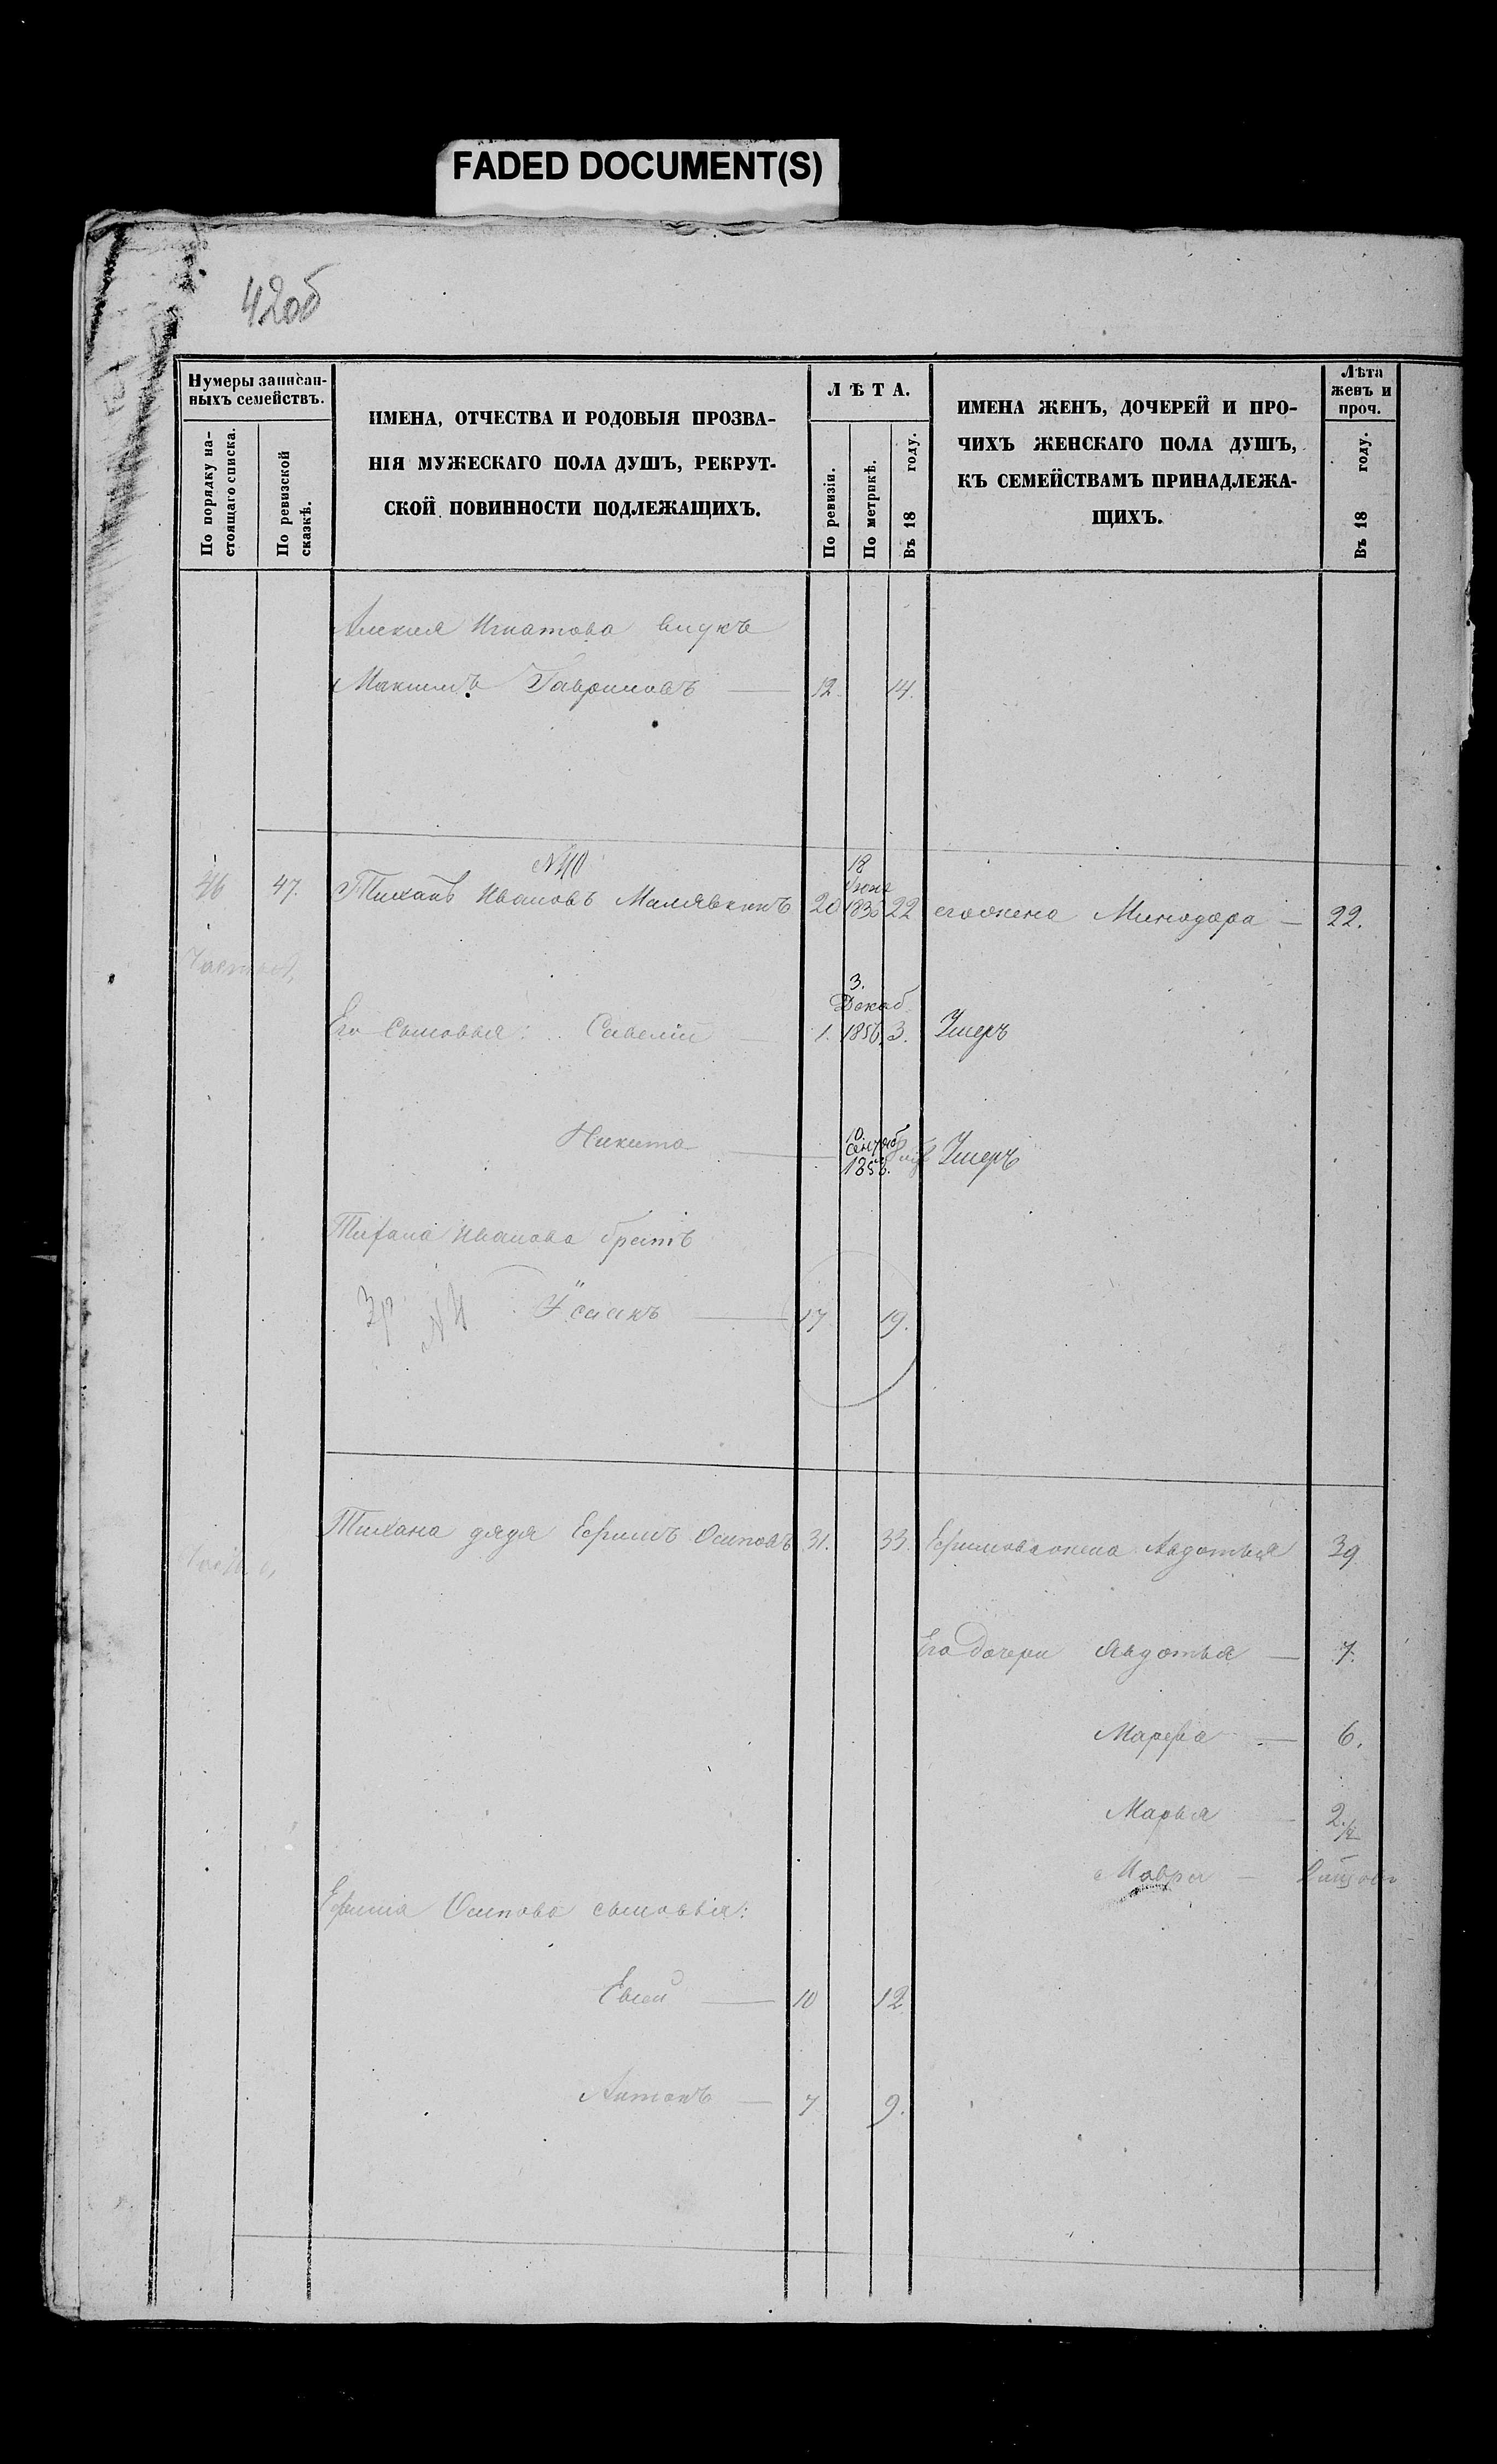 FADED DOCUMENT(S)
42об
Нумеры записан-
ныхъ семействъ.
По порядку на-
стоящаго списка.
По ревизской
сказкѣ.
ИМЕНА, ОТЧЕСТВА И РОДОВЫЯ ПРОЗВА-
НІЯ МУЖЕСКАГО ПОЛА ДУШЪ, РЕКРУТ-
СКОЙ ПОВИННОСТИ ПОДЛЕЖАЩИХЪ.
ЛѢТА.
По ревизіи.
По метрикѣ.
Въ 18 году.
ИМЕНА ЖЕНЪ, ДОЧЕРЕЙ И ПРО-
ЧИХЪ ЖЕНСКАГО ПОЛА ДУШЪ,
КЪ СЕМЕЙСТВАМЪ ПРИНАДЛЕЖА-
ЩИХЪ.
Лѣта
женъ и
проч.
Въ 18 году.
Игнатова внукъ
Максимъ Гавриловъ — 12. 14.
46 47. Тиханъ Ивановъ Малявкинъ 20 18 Июня 22 его жена Минодора — 22.
Его Сыновья: Савелій — 1. 3. Декаб 1856. 3. Умеръ
Никита — 10. Сентяб 1858. Умеръ
Тихана Иванова братъ
Зр Исаакъ — 17 19.
Тихана дядя Ефимъ Осиповъ 31. 33. Ефимова жена Авдотья 39
Его дочери Авдотья — 7.
Марфа — 6.
Марья 2 1/2
Мавра —
Ефима Осипова сыновья:
10 12
Антонъ — 7 9.